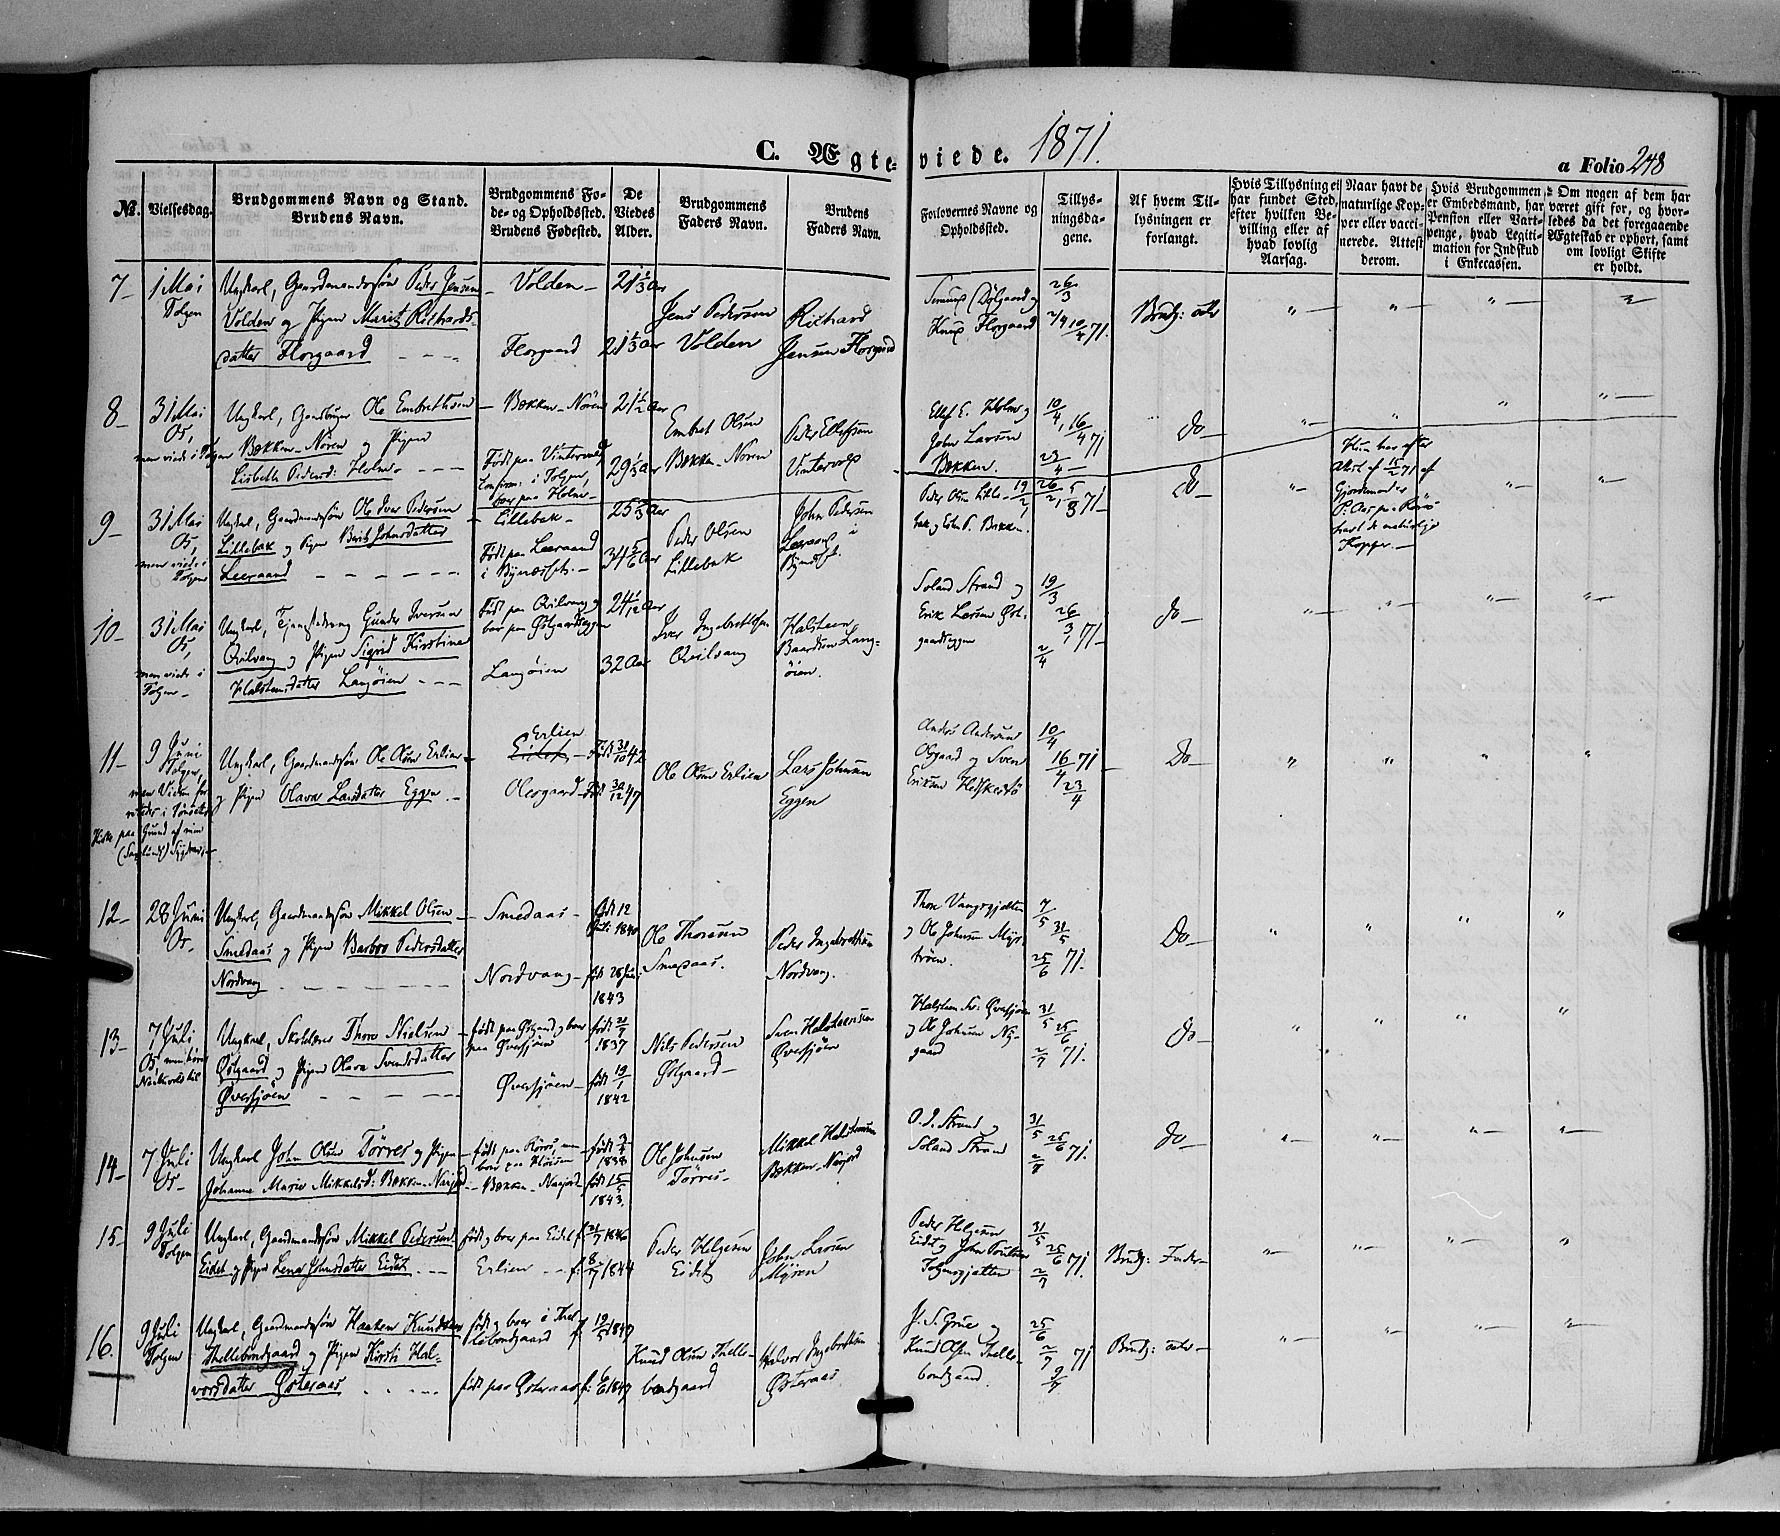 C. Ægteviede. 1871.
a Folio 248
№.
Vielsesdag.
Brudgommens Navn og Stand.
Brudens Navn.
Brudgommens Fø-
de- og Opholdssted.
Brudens Fødested.
De
Viedes
Alder.
Brudgommens
Faders Navn.
Brudens
Faders Navn.
Forlovernes Navne og
Opholdssted.
Tillys-
ningsda-
gene.
Af hvem Til-
lysningen er
forlangt.
Hvis Tillysning ei
har fundet Sted,
efter hvilken Be-
villing eller af
hvad lovlig
Aarsag.
Naar havt de
naturlige Kop-
per eller vacci-
nerede. Attest
derom.
Hvis Brudgommen
er Embedsmand, har
Pension eller Vart-
penge, hvad Legiti-
mation for Indskud
i Enkecassen.
Om nogen af dem har
været gift før, og hvor-
ledes da det foregaaende
Ægteskab er ophørt, samt
om lovligt Skifte
er holdt.
7-
1 Mai
Tolgen
Ungkarl, Gaardmandssøn Peder Jensen
Volden og Pigen Marit Richards-
datter Florgaard
Volden
Florgaard
21 1/3 Aar
21 1/3 Aar
Jens Pedersen
Volden
Richard
Jensen Florgaard
Dølgaard og
Knud Florgaard
26/3
2/4 10/4 71.
8-
31 Mai
Os,
men viede i Tolgen
Ungkarl, Gaardbruger Ole Embretsen
Bækken-Nøren og Pigen
Lisbeth Pedersd: Holm
Bækken-Nøren
Født paa Vintervold,
i Tolgen,
boer paa Holm
21 1/2 Aar
29 1/3 Aar
Embret Olsen
Bækken-Nøren
Peder Ellefsen
Vintervold
Ellef E. Holm og
John Larsen
Bækken.
10/4, 16/4 71
23/4
do
9-
31 Mai
Os,
men viede i
Tolgen
Ungkarl, Gaardmandssøn Ole Iver Pedersen
Lillebæk og Pigen Berit Johnsdatter
Leeraand
Lillebæk
Født paa Leeraand
i Bynæsset.
25 2/3 Aar
34 5/6 Aar
Peder Olsen
Lillebæk
John Pedersen
Leeraand i
Peder Olsen Lille-
bæk og John P. Bækken.
19/2, 26/2, 5/3 71
do
Hun har efter
Att. af 15/2 71 af
Gjordemoder
havt de naturlige
Kopper.
10-
31 Mai
Os,
men viede i
Tolgen
Ungkarl, Tjenestedreng Gunder Iversen
Qvilvang og Pigen Sigrid Kirstine
Halstensdatter Langøien
Født paa Qvilvang og
boer paa Østgaardseggen
Langøien
24 1/12 Aar
32 Aar
Iver Ingebrethsen
Qvilvang
Halsteen
Baardsen Lang-
øien.
Soland Strand og
Erik Larsen Øst-
gaardseggen
19/3
26/3 71
2/4
do
11-
9 Juni
Tolgen,
Ungkarl, Gaardmandssøn Ole Olsen Erlien
og Pigen Olava Larsdatter Eggen
Erlien
Eidet
Olergaard
Født 31/10 42
Født 30/12 47
Ole Olsen Erlien
Lars Johnsen
Eggen
Anders Andersen
Olsgaard og Sven
Eriksen
10/4
16/4 71
23/4
Do
12-
28 Juni
Os.
Ungkarl, Gaardmandssøn Mikkel Olsen
Smedaas og Pigen Barbro Pedersdatter
Nordvang
Smedaas
Nordvang
født 12
1840
født 28 Juni
1843
Ole Thoresen
Smedaas.
Peder Ingebrethsen
Nordvang.
Thore Vangsgjelten
og Ole Johnsen Myr-
trøen.
7/5 31/5
25/6 71.
Do
13-
7 Juli
Ungkarl, Skolelærer Thore Nielsen
Østgaard og Pigen Olava Svendsdatter
Øversjøen
født paa Østgaard og boer
paa Øversjøen
Øversjøen
født 21/7
1837
født 19/1
1842
Nils Pedersen
Østgaard
Sven Halsteensen
Øversjøen
Halsten Sv: Øversjøen
og Ole Johnsen Ny-
gaard
31/5 25/6
2/7 71.
do
14-
7 Juli
Os
Ungkarl John Olsen Tørres og Pigen
Johanne Marie Mikkelsd: Bækken-Narjord
født paa Røros, men
boer paa
Bækken-Narjord
1838
født 15/5
1843.
Ole Johnsen
Tørres
Mikkel Halstensen
Bækken-Narjord
O. J. Strand og
Soland Strand
31/5 25/6 71.
2/7
do
15-
9 Juli
Tolgen
Ungkarl, Gaardmandssøn Mikkel Pedersen
Eidet og Pigen Lene Johnsdatter Eidet
født og boer paa Eidet
Erlien
f. 21/7 1846
f. 8/7 1844
Peder Helgesen
Eidet
John Larsen
Myren
Peder Helgesen
Eidet og John Poulsen
Tolgensgjelten
31/5
25/6 71.
2/7
Brudg: Fader
16.
9 Juli
Tolgen
Ungkarl, Gaardmandssøn Haaken Knudsen
Thellebondgaard og Pigen Kirsti Hal-
vorsdatter Østeraas
født og boer i Thel-
lebondgaard
født paa Østeraas
f. 19/5 1849
f. 1/6 1849
Knud Olsen Thelle-
bondgaard
Halvor Ingebrethsen
Østeraas
J. S. Grue og
Knud Olsen Thelle-
bondgaard.
25/6
2/7 71
9/7